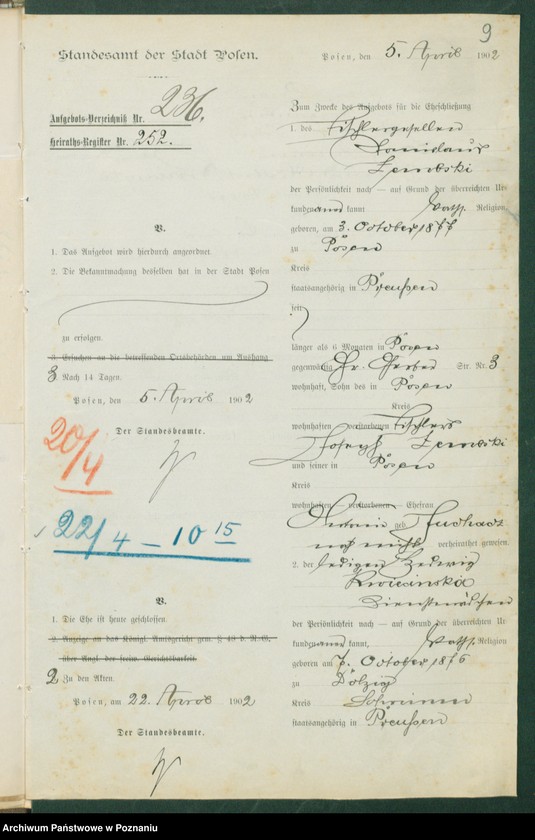 9
Standesamt der Stadt Posen.
Aufgebots-Verzeichniß Nr. 236.
Heiraths-Register Nr. 252.
V.
1. Das Aufgebot wird hierdurch angeordnet.
2. Die Bekanntmachung desselben hat in der Stadt Posen
zu erfolgen.
3. Ersuchen an die betreffenden Ortsbehörden um Aushang
3 Nach 14 Tagen.
Posen, den 5. April 1902
Der Standesbeamte.
20/4
22/4 – 10 15
V.
1. Die Ehe ist heute geschlossen.
2. Anzeige an das Königl. Amtsgericht gem. § 49 d. R.G.
über Angl. der freiw. Gerichtsbarkeit
2 Zu den Akten.
Posen, am 22. April 1902
Der Standesbeamte.
Posen, den 5. April 1902
Zum Zwecke des Aufgebots für die Eheschließung
1. des Tischlergesellen
Stanislaus
der Persönlichkeit nach — auf Grund der überreichten Ur
kunden anerkannt kath. Religion,
geboren, am 3. October 1877
zu Posen
Kreis
staatsangehörig in Preußen
seit
länger als 6 Monaten in Posen
gegenwärtig Gr. Gerber Str. Nr. 3
wohnhaft, Sohn des in Posen
Kreis
wohnhaften verstorbenen Tischlers
Joseph
und seiner in Posen
Kreis
wohnhaften verstorbenen Ehefrau
Antonie geb.
noch nicht verheirathet gewesen.
2. der ledigen Hedwig
Kwiecinska
Dienstmädchen
der Persönlichkeit nach — auf Grund der überreichten Ur
kunden anerkannt, kath. Religion
geboren am 7. October 1876
zu Dolzig
Kreis Schrimm
staatsangehörig in Preußen
Archiwum Państwowe w Poznaniu